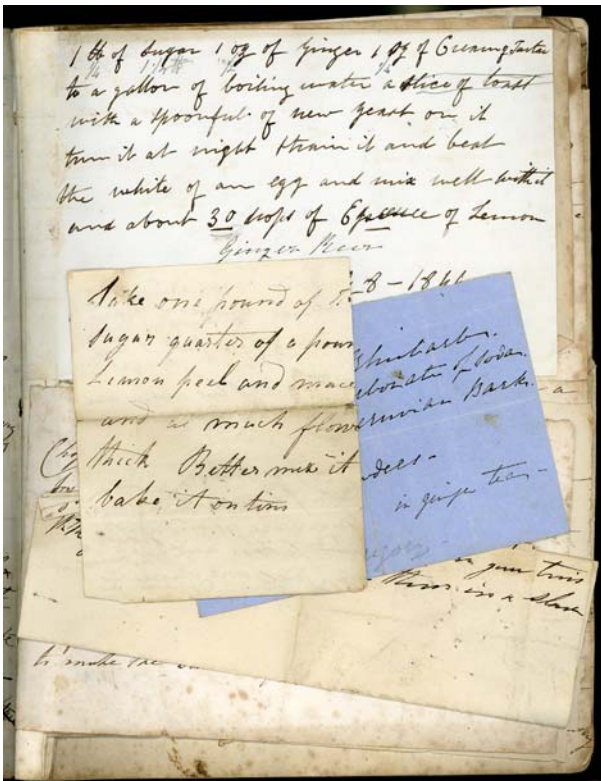 1 lb of Sugar 1 oz of Ginger 1 oz of Cream Tartar
to a gallon of boiling water a slice of toast
with a spoonful of new yeast on it
turn it at night strain it and beat
the white of an egg and mix well with it
and about 30 drops of Essence of Lemon
Ginger Beer
Take one pound of
Sugar quarter of a poun
Lemon peel and mace
and as much flow
thick Better mix it
bake it on tins
Rhubarb.
bonate of Soda.
ruvian Bark. a
in ginger tea
in your tins
them in a slow
to make the